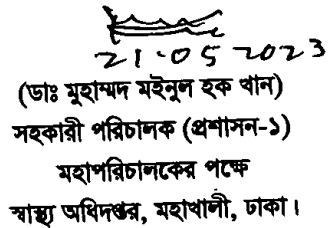 21.05 2023
(ডাঃ মুহাম্মদ মইনুল হক খান)
সহকারী পরিচালক (প্রশাসন-১)
মহাপরিচালকের পক্ষে
স্বাস্থ্য অধিদপ্তর, মহাখালী, ঢাকা।